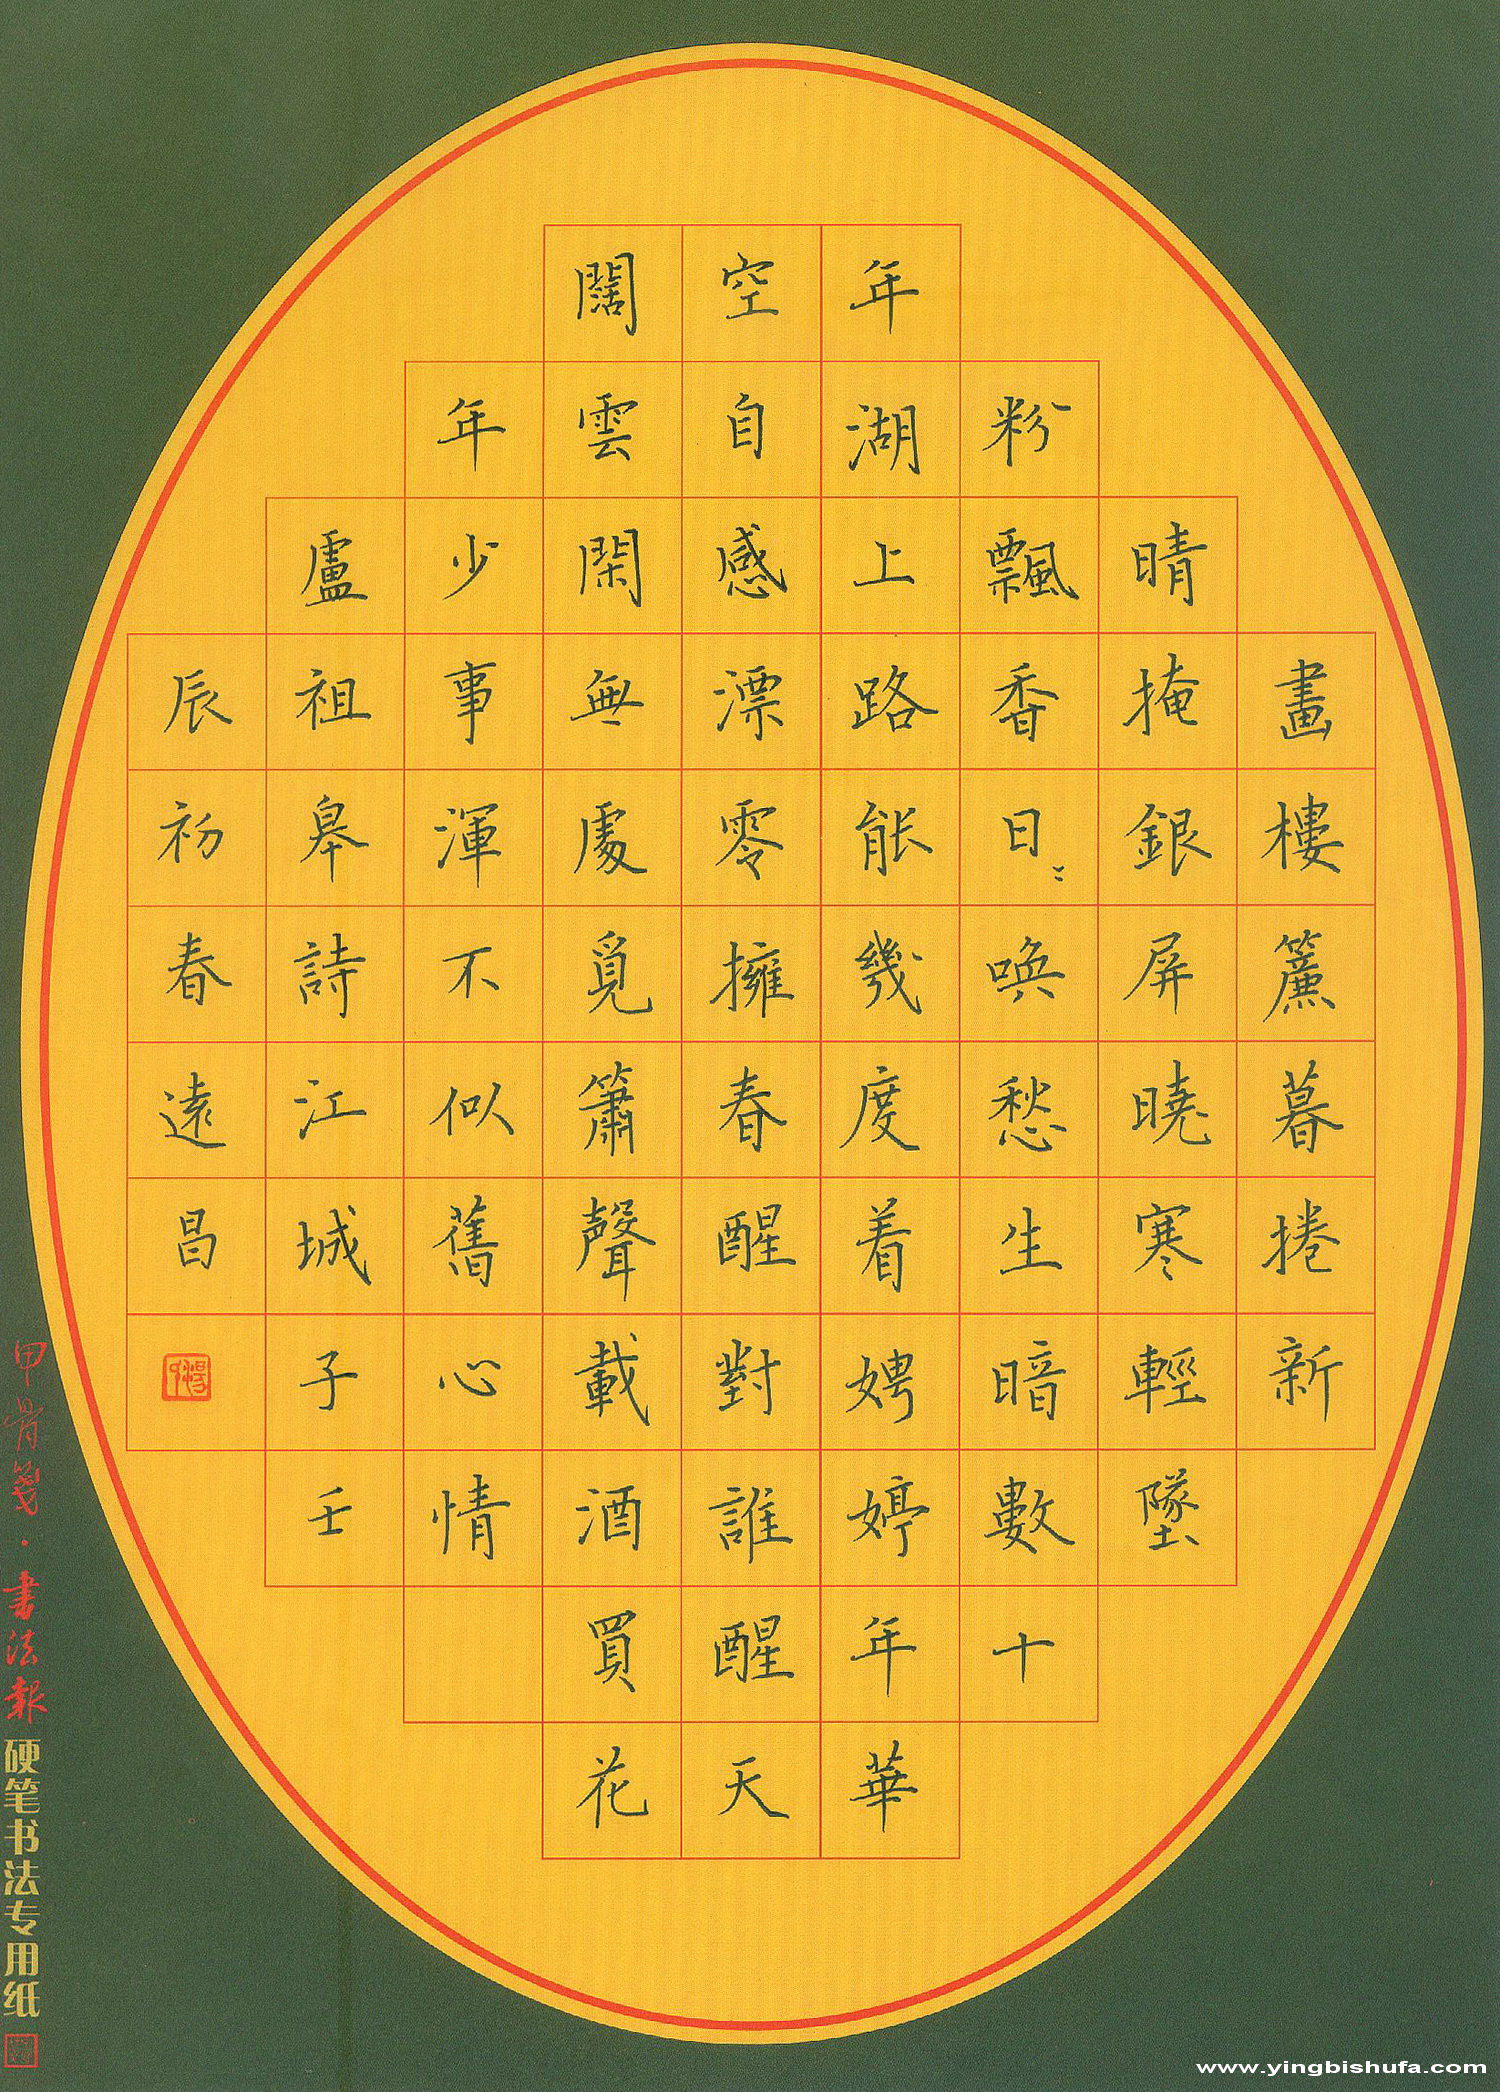 畫樓簾暮捲新
晴掩銀屏曉寒輕墜
粉飄香日〻喚愁生暗數十
年湖上路能幾度着娉婷年華
空自感漂零擁春醒對誰醒天
闊雲閑無處覓簫聲載酒買花
年少事渾不似舊心情
盧祖皋詩江城子壬
辰初春遠昌
甲骨箋·書法報硬笔书法专用纸
www.yingbishufa.com